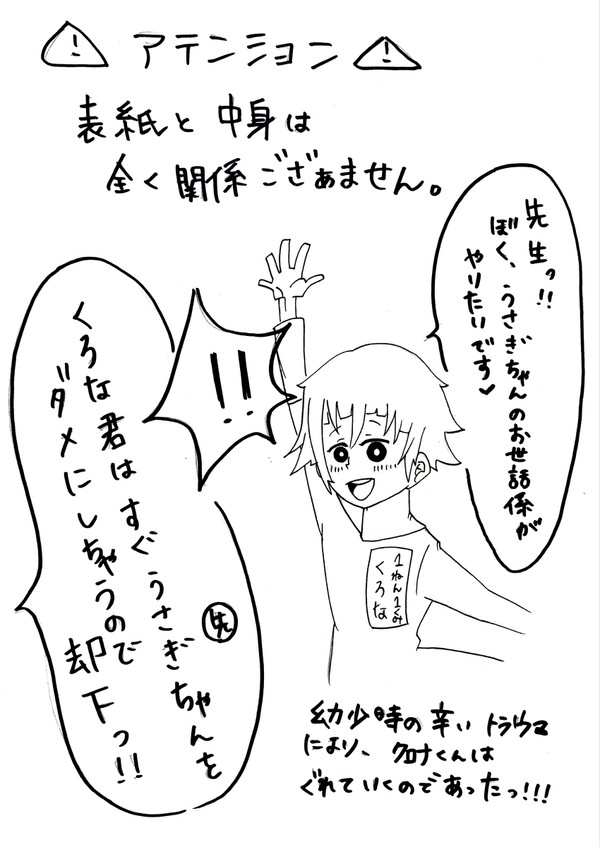 アテンション
表紙と中身は
全く関係ござぁません。
先生っ!!
ぼく、うさぎちゃんのお世話係が
やりたいです♥
!!
くろな君はすぐうさぎちゃんを
ダメにしちゃうので
却下っ!!
先
1ねん1くみ
くろな
幼少時の辛いトラウマ
により、クロナくんは
ぐれていくのであったっ!!!